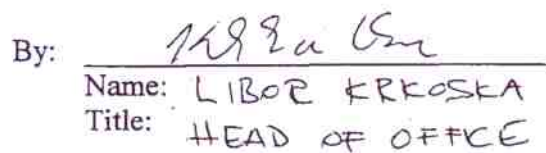 By:
Name: LIBOR KRKOSKA
Title: HEAD OF OFFICE